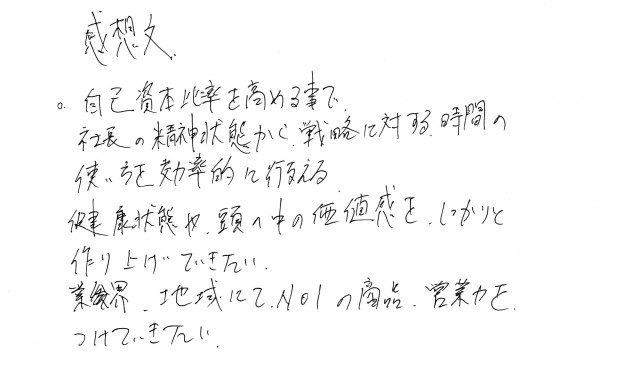 感想文.
○. 自己資本比率を高める事で、
社長の精神状態から、戦略に対する、時間の
使い方を効率的に行える
健康状態や、頭の中の価値感を、しっかりと
作り上げていきたい.
業界、地域にて、NO1の商品、営業力を、
つけていきたい.